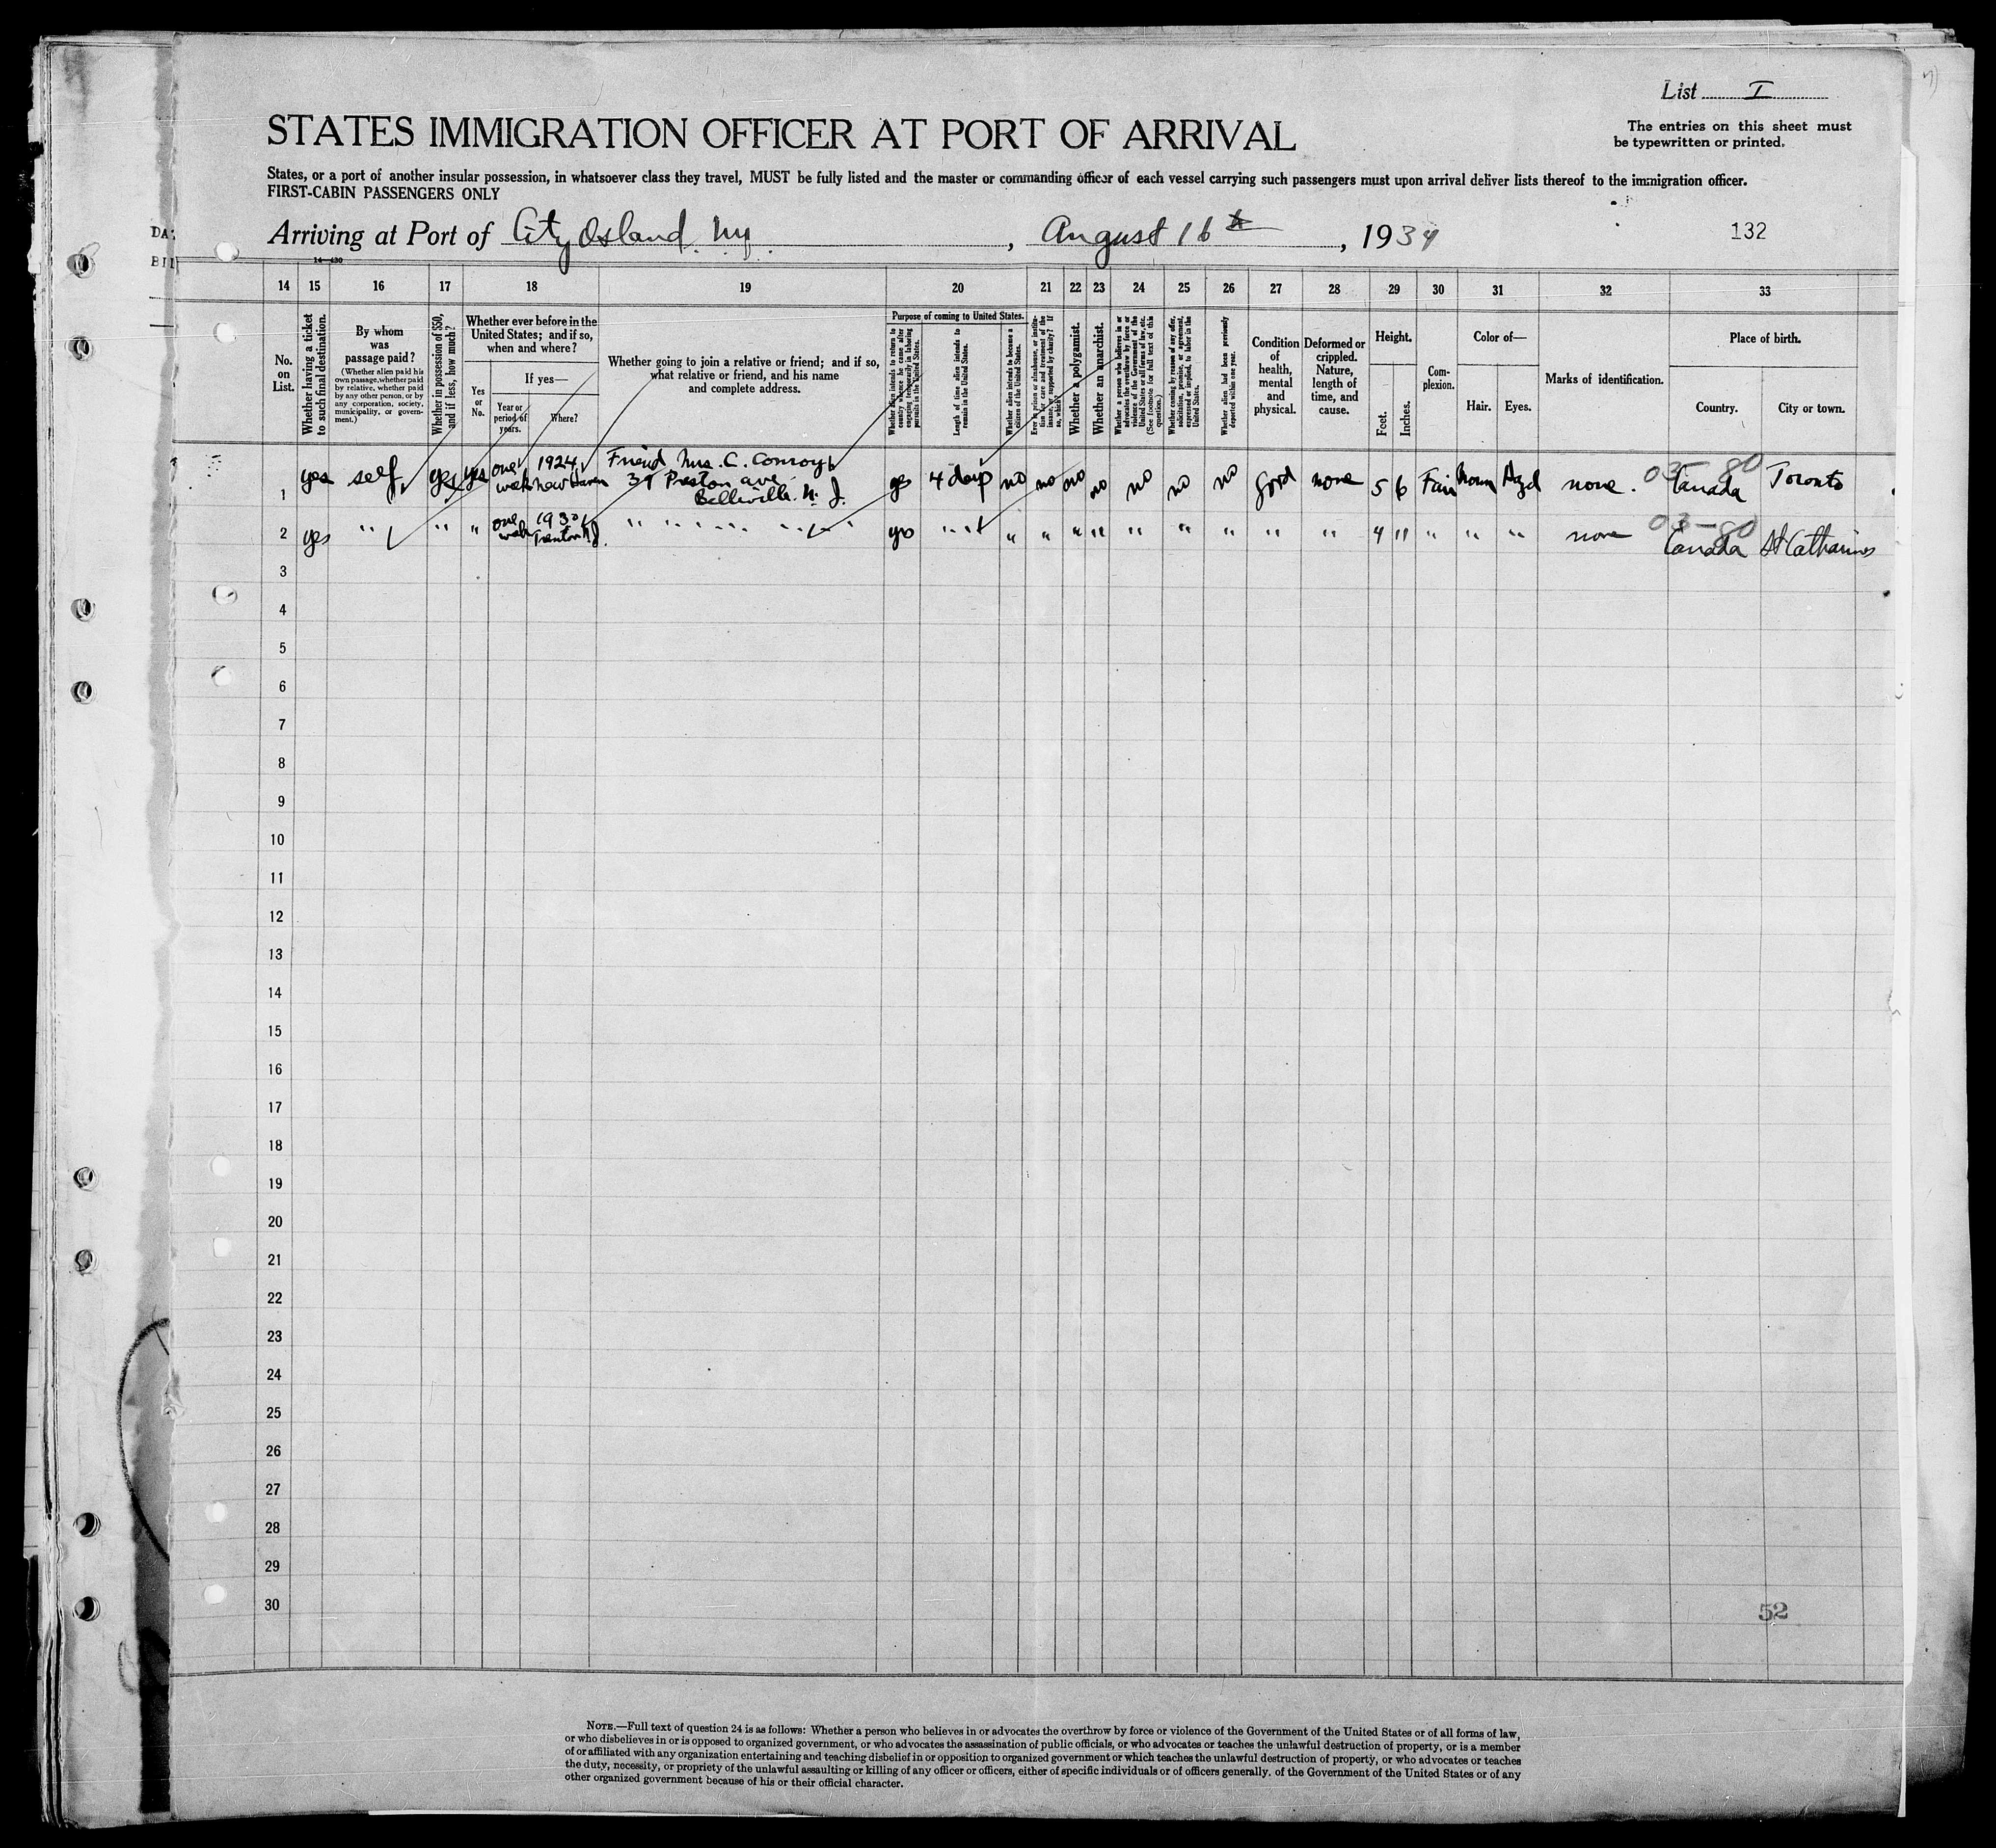 List I
The entries on this sheet must
be typewritten or printed.
STATES IMMIGRATION OFFICER AT PORT OF ARRIVAL
States, or a port of another insular possession, in whatsoever class they travel, MUST be fully listed and the master or commanding officer of each vessel carrying such passengers must upon arrival deliver lists thereof to the immigration officer.
FIRST-CABIN PASSENGERS ONLY
Arriving at Port of City Island Ny. , August 16th , 1934
132
14—430
14 15 16 17 18 19 20 21 22 23 24 25 26 27 28 29 30 31 32 33
No. on List.
Whether having a ticket to such final destination.
By whom was passage paid?
(Whether alien paid his own passage, whether paid by relative, whether paid by any other person, or by any corporation, society, municipality, or government.)
Whether in possession of $50, and if less, how much?
Whether ever before in the United States; and if so, when and where?
Yes or No.
If yes—
Year or period of years.
Where?
Whether going to join a relative or friend; and if so, what relative or friend, and his name and complete address.
Purpose of coming to United States.
Whether alien intends to return to country whence he came after engaging temporarily in laboring pursuits in the United States.
Length of time alien intends to remain in the United States.
Whether alien intends to become a citizen of the United States.
Ever in prison or almshouse, or institution for care and treatment of the insane, or supported by charity? If so, which?
Whether a polygamist.
Whether an anarchist.
Whether a person who believes in or advocates the overthrow by force or violence of the Government of the United States or all forms of law, etc. (See footnote for full text of this question.)
Whether coming by reason of any offer, solicitation, promise, or agreement, expressed or implied, to labor in the United States.
Whether alien had been previously deported within one year.
Condition of health, mental and physical.
Deformed or crippled. Nature, length of time, and cause.
Height.
Feet.
Inches.
Complexion.
Color of—
Hair.
Eyes.
Marks of identification.
Place of birth.
Country.
City or town.
1 yes self yes yes one week 1924 New Haven Friend Mrs. C. Conroy
37 Preston ave
Belleville. N. J. yes 4 days no no no no no no no good none 5 6 Fair Hazl none. 03-80 Canada Toronto
2 yes " " " one week 1930 Trenton N.J. " " " " " " " yes " " " " " " " " " " " 4 " " " " none 03-80 Canada St Catharines
3
4
5
6
7
8
9
10
11
12
13
14
15
16
17
18
19
20
21
22
23
24
25
26
27
28
29
30
52
NOTE.—Full text of question 24 is as follows: Whether a person who believes in or advocates the overthrow by force or violence of the Government of the United States or of all forms of law,
or who disbelieves in or is opposed to organized government, or who advocates the assassination of public officials, or who advocates or teaches the unlawful destruction of property, or is a member
of or affiliated with any organization entertaining and teaching disbelief in or opposition to organized government or which teaches the unlawful destruction of property, or who advocates or teaches
the duty, necessity, or propriety of the unlawful assaulting or killing of any officer or officers, either of specific individuals or of officers generally. of the Government of the United States or of any
other organized government because of his or their official character.